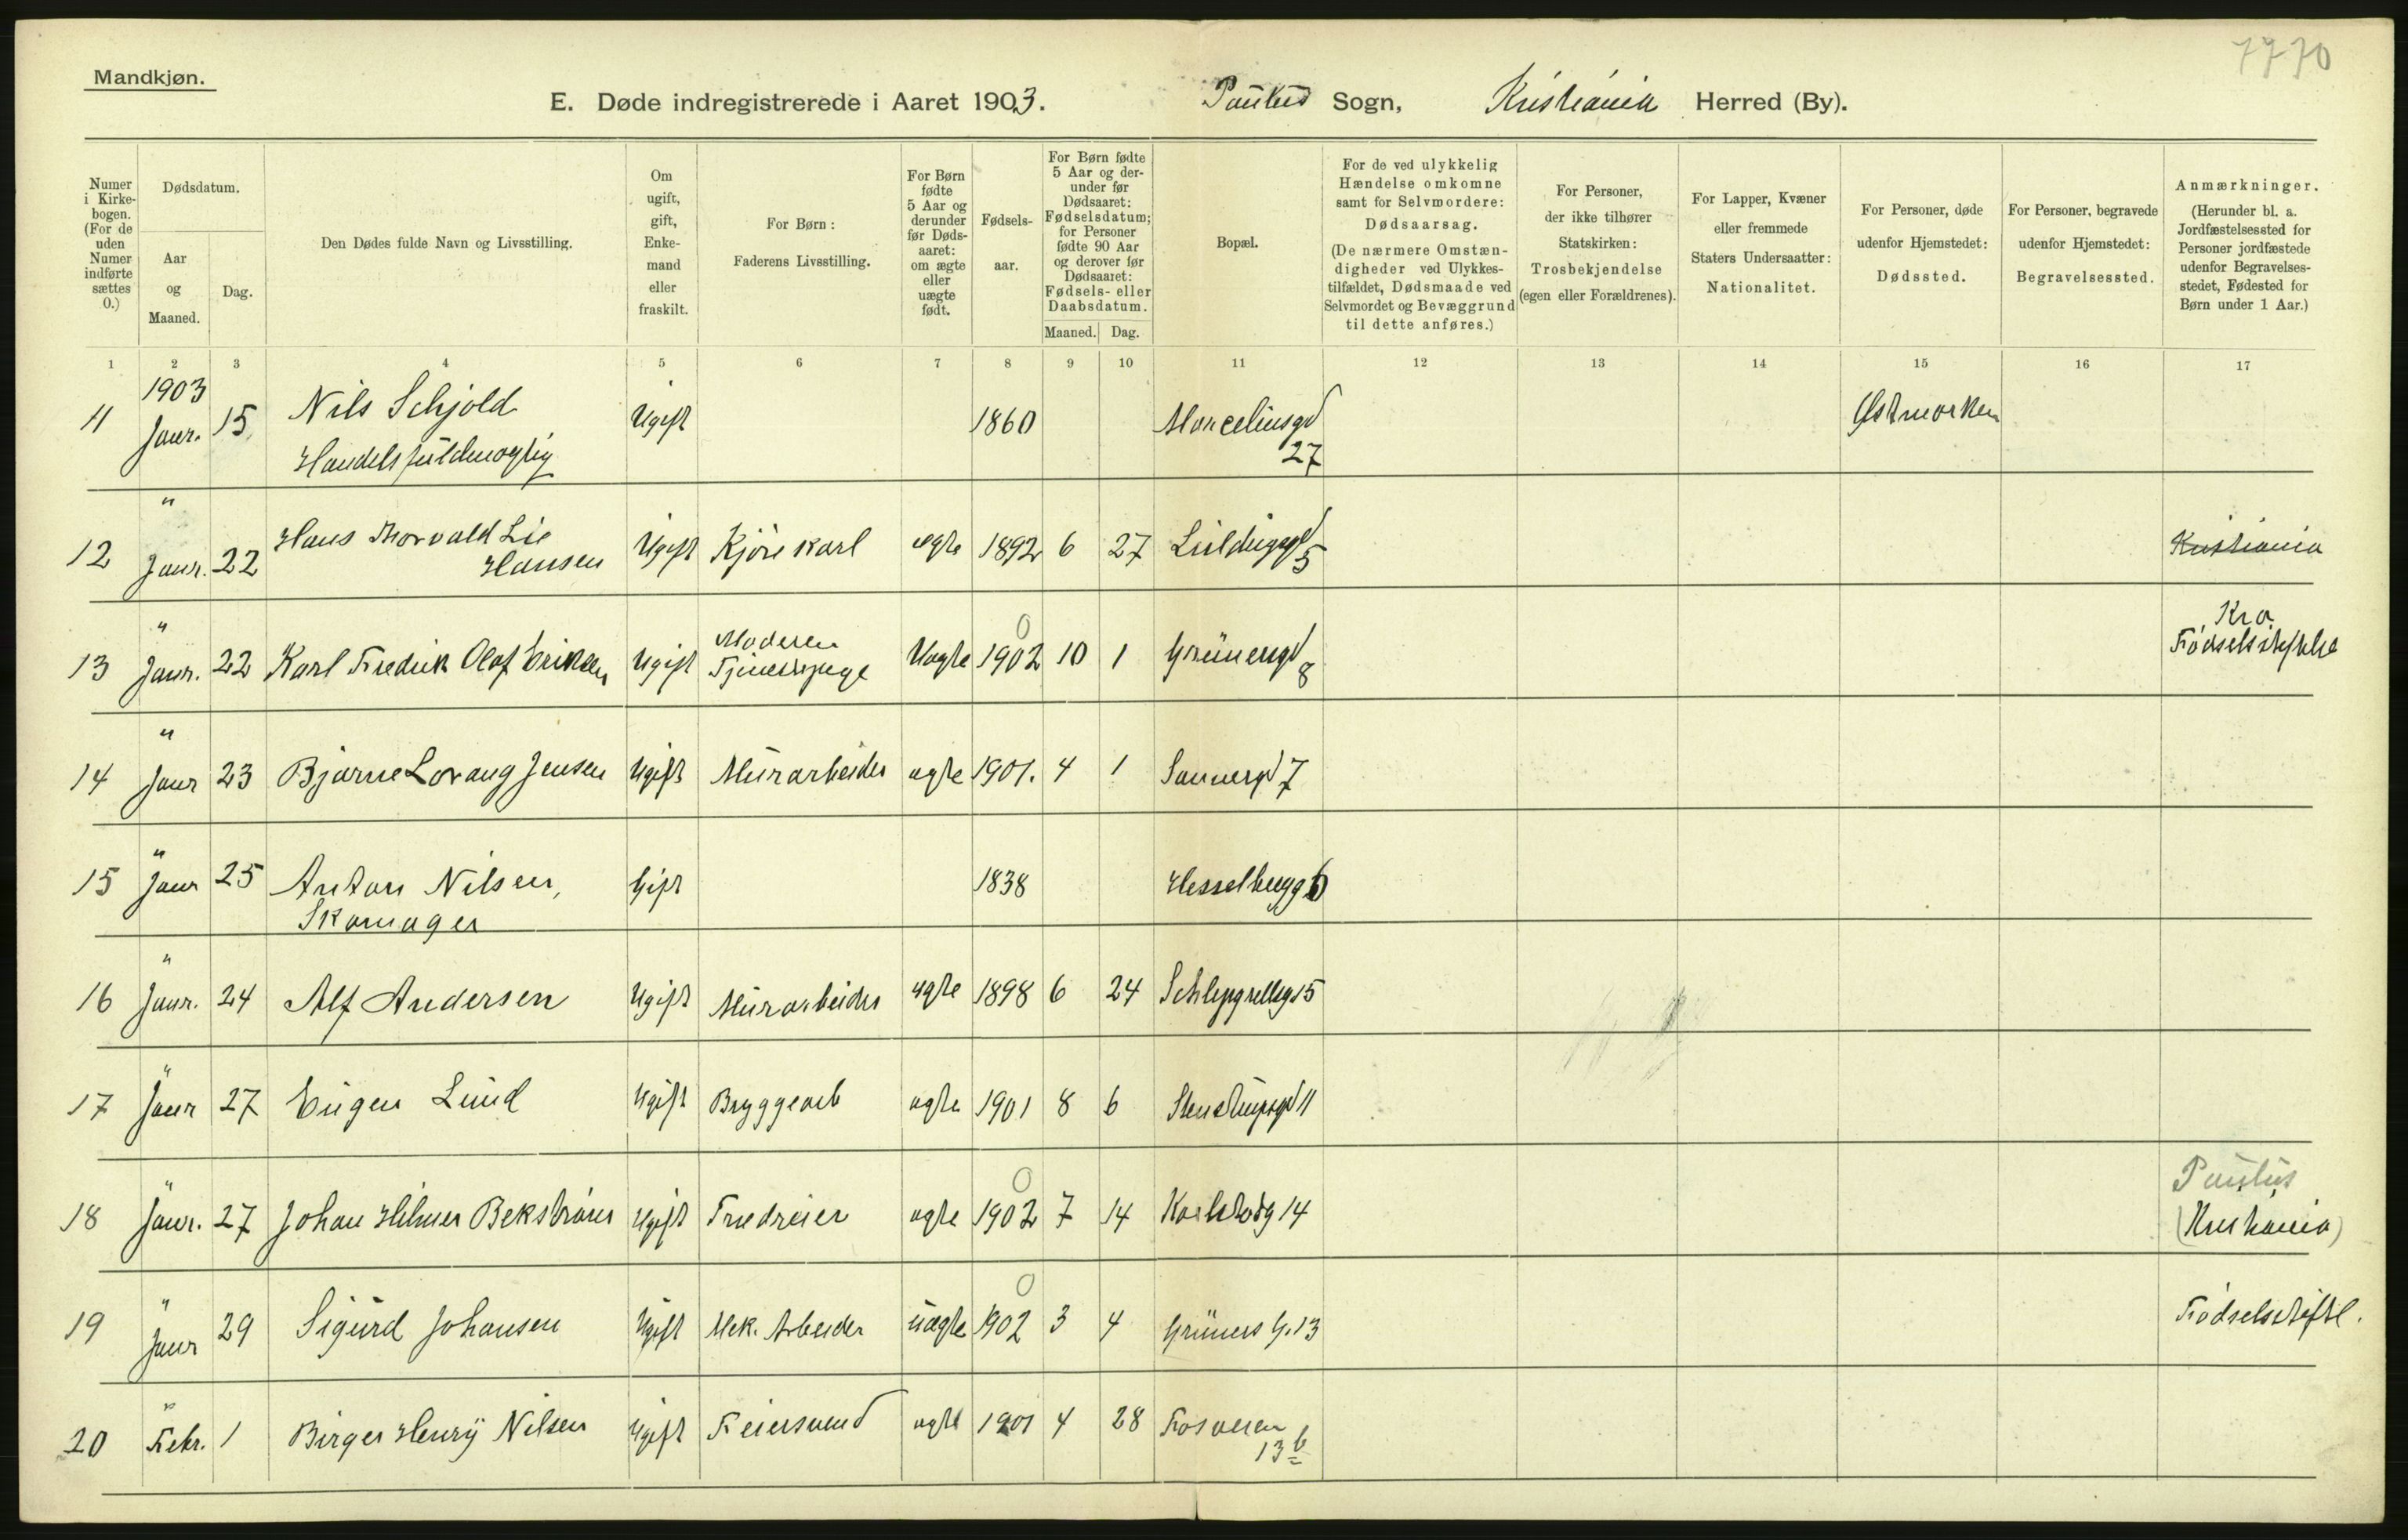 7770
Mandkjøn.
E. Døde indregistrerede i Aaret 1903. Paulus Sogn, Kristiania Herred (By).
Numer i Kirkebogen. (For de uden Numer indførte sættes 0.)
Dødsdatum.
Aar og Maaned.
Dag.
Den Dødes fulde Navn og Livsstilling.
Om ugift, gift, Enkemand eller fraskilt.
For Børn: Faderens Livsstilling.
For Børn fødte 5 Aar og derunder før Dødsaaret: om ægte eller uægte født.
Fødselsaar.
For Børn fødte 5 Aar og derunder før Dødsaaret: Fødselsdatum; for Personer fødte 90 Aar og derover før Dødsaaret: Fødsels- eller Daabsdatum.
Maaned. Dag.
Bopæl.
For de ved ulykkelig Hændelse omkomne samt for Selvmordere: Dødsaarsag. (De nærmere Omstændigheder ved Ulykkestilfældet, Dødsmaade ved Selvmordet og Bevæggrund til dette anføres.)
For Personer, der ikke tilhører Statskirken: Trosbekjendelse (egen eller Forældrenes).
For Lapper, Kvæner eller fremmede Staters Undersaatter: Nationalitet.
For Personer, døde udenfor Hjemstedet: Dødssted.
For Personer, begravede udenfor Hjemstedet: Begravelsessted.
Anmærkninger. (Herunder bl. a. Jordfæstelsessted for Personer jordfæstede udenfor Begravelsesstedet, Fødested for Børn under 1 Aar.)
1 2 3 4 5 6 7 8 9 10 11 12 13 14 15 16 17
1903
11 Janr. 15 Nils Schjold Ugift 1860 Marceliusgd 27 Østmarken
Handelsfuldmægtig
"
12 Janr. 22 Hans Thorvald Lie Hansen Ugift Kjørekarl ægte 1892 6 27 5 Kristiania
"
13 Janr. 22 Karl Fredrik Olaf Eriksen Ugift Moderen Tjenestepige Uægte 1902 0 10 1 Grünersgd 8 Kra. Fødselsstiftelse
"
14 Janr 23 Bjarne Lovang Jensen Ugift Murarbeider ægte 1901. 4 1 Sannergd 7
"
15 Janr 25 Anton Nilsen, Gift 1838 Hesselbergg 6
Skomager
"
16 Janr. 24 Alf Andersen Ugift Murarbeider ægte 1898 6 24 Schleppegrellsg 15
"
17 Janr 27 Eugen Lund Ugift Bryggearb ægte 1901 8 6 Stenstrupsgd 11
"
18 Janr. 27 Johan Hilmer Bekstrøm Ugift ægte 1902 0 7 14 Karlstadg 14 Paulus (Kristiania)
"
19 Janr 29 Sigurd Johansen Ugift Mek. Arbeider uægte 1902 0 3 4 Grüners G. 13 Fødselsstiftl.
"
20 Febr. 1 Birger Henry Nilsen Ugift Feiersvend ægte 1901 4 28 Fosveien 13 b